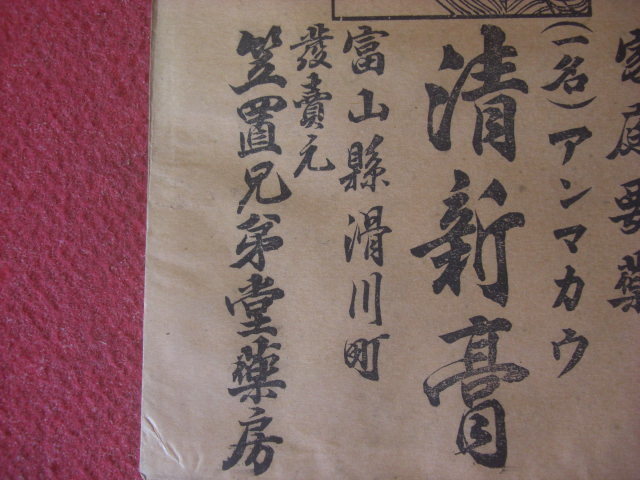 家庭要薬
(一名)アンマカウ
清新膏
富山縣滑川町
發賣元
笠置兄弟堂藥房